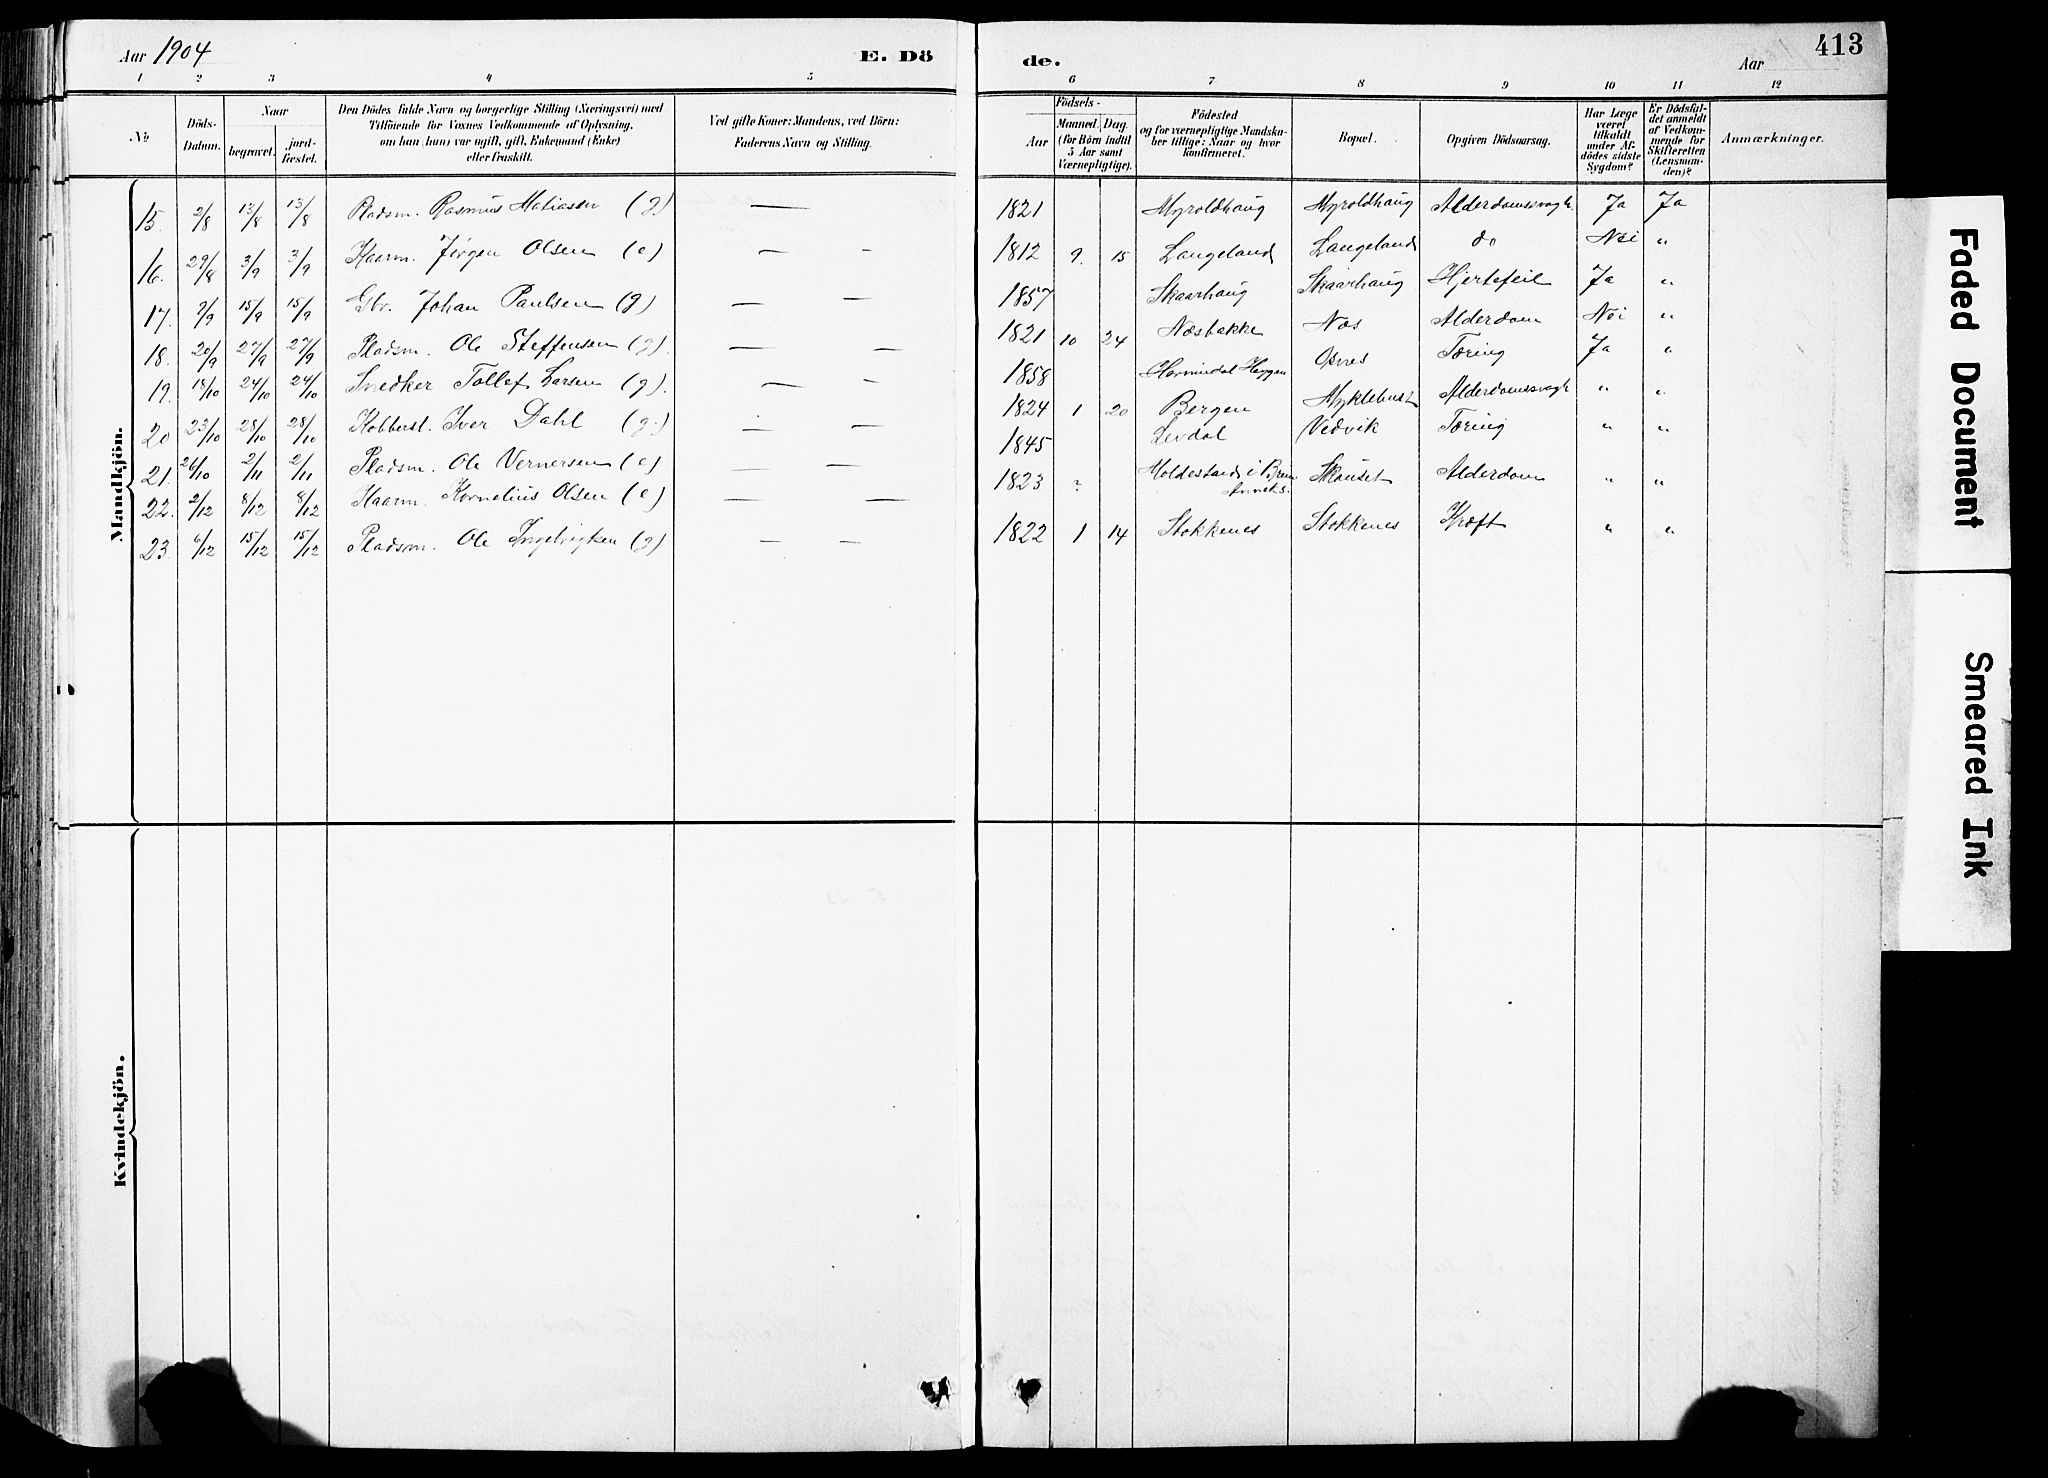 Aar 1904
E. Dö
de.
Aar
413
1 2 3 4 5 6 7 8 9 10 11 12
No
Döds-Datum.
Naar
begravet.
jord-fæstet.
Den Dödes fulde Navn og borgerlige Stilling (Næringsvei) med
Tilföiende for Voxnes Vedkommende af Oplysning,
om han (hun) var ugift, gift, Enkemand (Enke)
eller fraskilt.
Ved gifte Koner: Mandens, ved Börn:
Faderens Navn og Stilling.
Födsels-
Aar
Maaned. Dag.
(for Börn indtil
5 Aar samt
Værnepligtige).
Födested
og for værnepligtige Mandska-
ber tillige: Naar og hvor
konfirmeret.
Bopæl.
Opgiven Dödsaarsag.
Har Læge
været
tilkaldt
under Af-
dödes sidste
Sygdom?
Er Dödsfal-
det anmeldt
af Vedkom-
mende for
Skifteretten
(Lensman-
den)?
Anmærkninger.
Mandkjön.
15. 2/8 13/8 13/8 Pladsm. Rasmus Matiasen (g.) — 1821 Myroldhaug Myroldhaug Alderdomssvagh. Ja Ja
16. 29/8 3/9 3/9 Kaarm. Jörgen Olsen (e) — — 1812 9. 15 Langeland Langeland do Nei "
17. 9/9 15/9 15/9 Gbr. Johan Paulsen (g) — — 1857 Skaarhaug Skaarhaug Hjertefeil Ja "
18. 20/9 27/9 27/9 Pladsm. Ole Steffensen (g.) — — 1821 10 24 Næsbakke Næs Alderdom Nei "
19. 18/10 24/10 24/10 Snedker Tollef Larsen (g). — — 1858 Heggen Osnes Tæring Ja "
20 23/10 28/10 28/10 Kobberst. Iver Dahl (g.) — — 1824 1 20 Bergen Myklebust Alderdomssvagh " "
21. 26/10 2/11 2/11 Pladsm. Ole Vernersen (e) — — 1845 Levdal Vedvik Tæring " "
22. 2/12 8/12 8/12 Kaarm. Kornelius Olsen (e) — — 1823 ? Moldestad i Breim Anneks. Alderdom " "
23. 6/12 15/12 15/12 Pladsm. Ole Ingebrigtsen (g) — — 1822 1 14 Stokkenes Stokkenes Kræft " "
Kvindekjön.
Faded Document
Smeared Ink